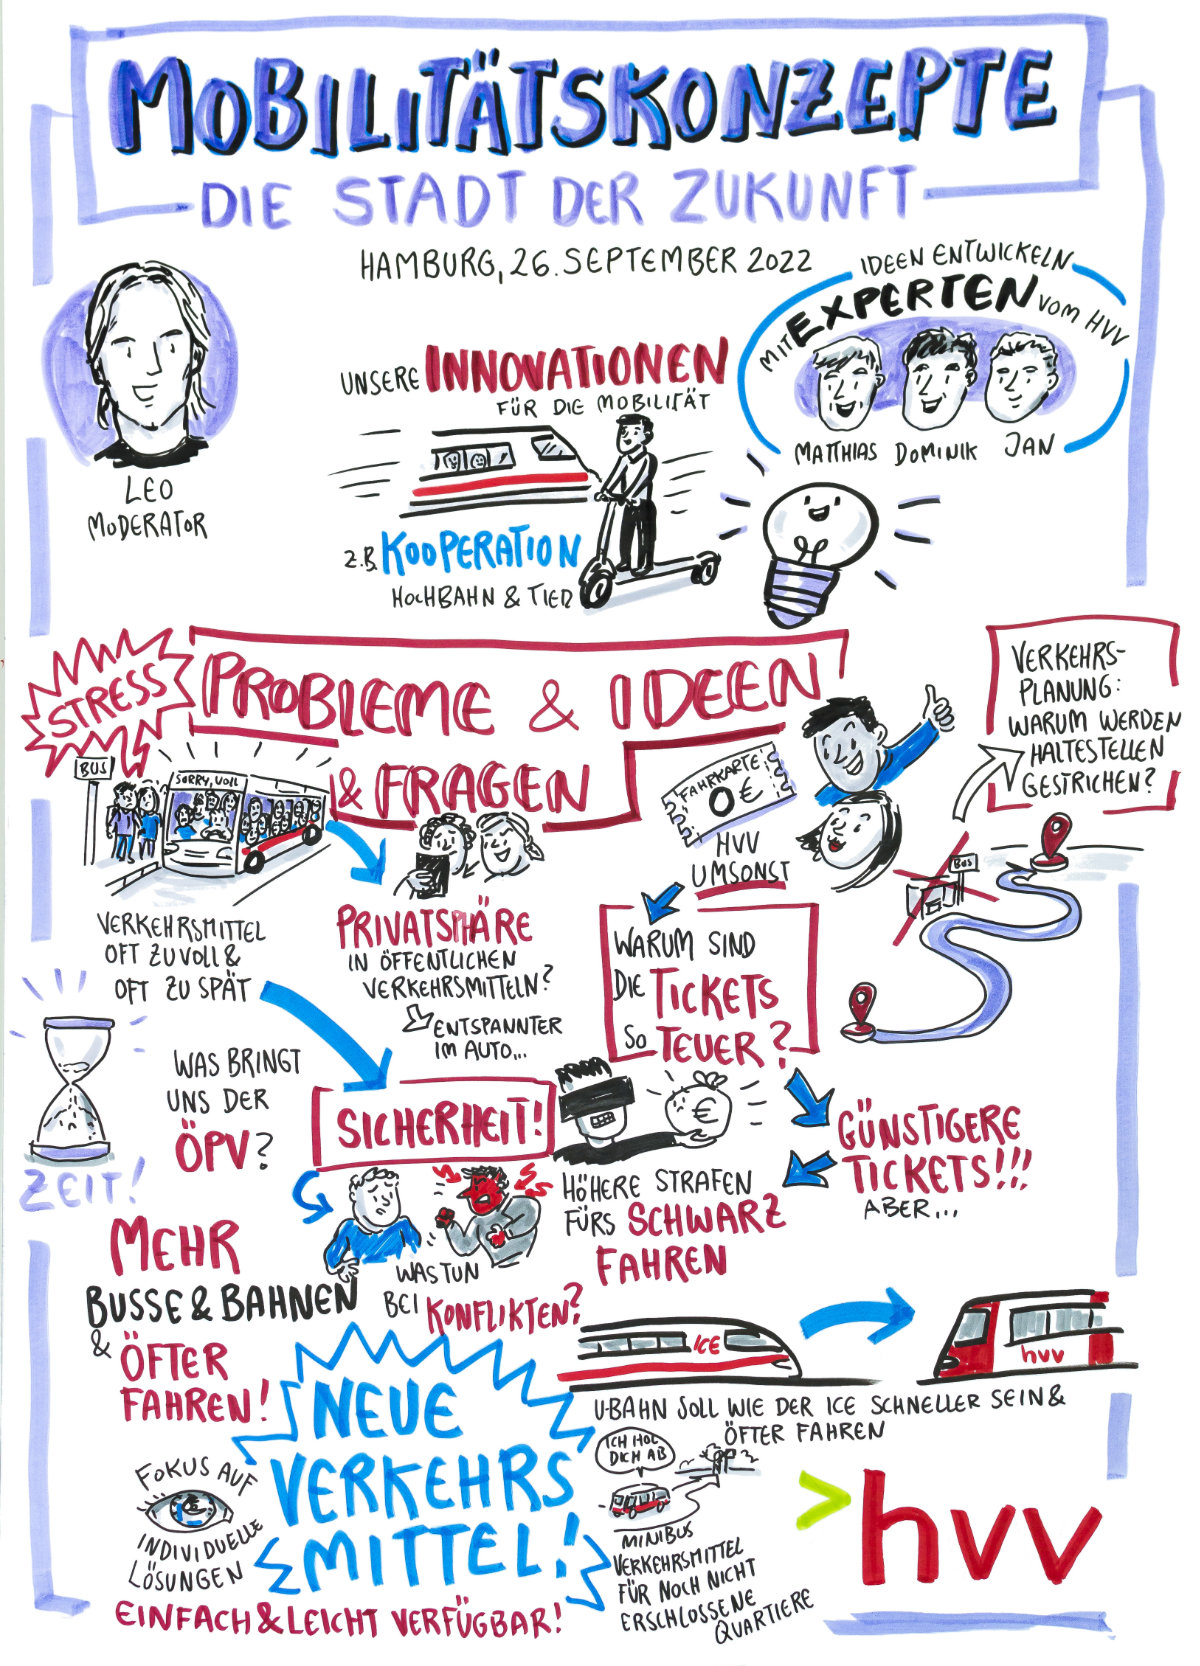 MOBILITÄTSKONZEPTE
DIE STADT DER ZUKUNFT
HAMBURG, 26. SEPTEMBER 2022
LEO
MODERATOR
IDEEN ENTWICKELN
MIT EXPERTEN VOM HVV
MATTHIAS DOMINIK JAN
UNSERE INNOVATIONEN
FÜR DIE MOBILITÄT
Z.B. KOOPERATION
HOCHBAHN & TIER
STRESS
PROBLEME & IDEEN
& FRAGEN
BUS
SORRY, VOLL
VERKEHRSMITTEL
OFT ZU VOLL &
OFT ZU SPÄT
PRIVATSPHÄRE
IN ÖFFENTLICHEN
VERKEHRSMITTELN?
ENTSPANNTER
IM AUTO...
FAHRKARTE
0 €
HVV
UMSONST
WARUM SIND
DIE TICKETS
SO TEUER?
VERKEHRS-
PLANUNG:
WARUM WERDEN
HALTESTELLEN
GESTRICHEN?
BUS
ZEIT!
WAS BRINGT
UNS DER
ÖPV?
SICHERHEIT!
WAS TUN
BEI KONFLIKTEN?
€
HÖHERE STRAFEN
FÜRS SCHWARZ
FAHREN
GÜNSTIGERE
TICKETS!!!
ABER...
MEHR
BUSSE & BAHNEN
& ÖFTER
FAHREN!
ICE
hvv
U-BAHN SOLL WIE DER ICE SCHNELLER SEIN &
ÖFTER FAHREN
NEUE
VERKEHRS
MITTEL!
FOKUS AUF
INDIVIDUELLE
LÖSUNGEN
EINFACH & LEICHT VERFÜGBAR!
ICH HOL
DICH AB
MINIBUS
VERKEHRSMITTEL
FÜR NOCH NICHT
ERSCHLOSSENE
QUARTIERE
>hvv